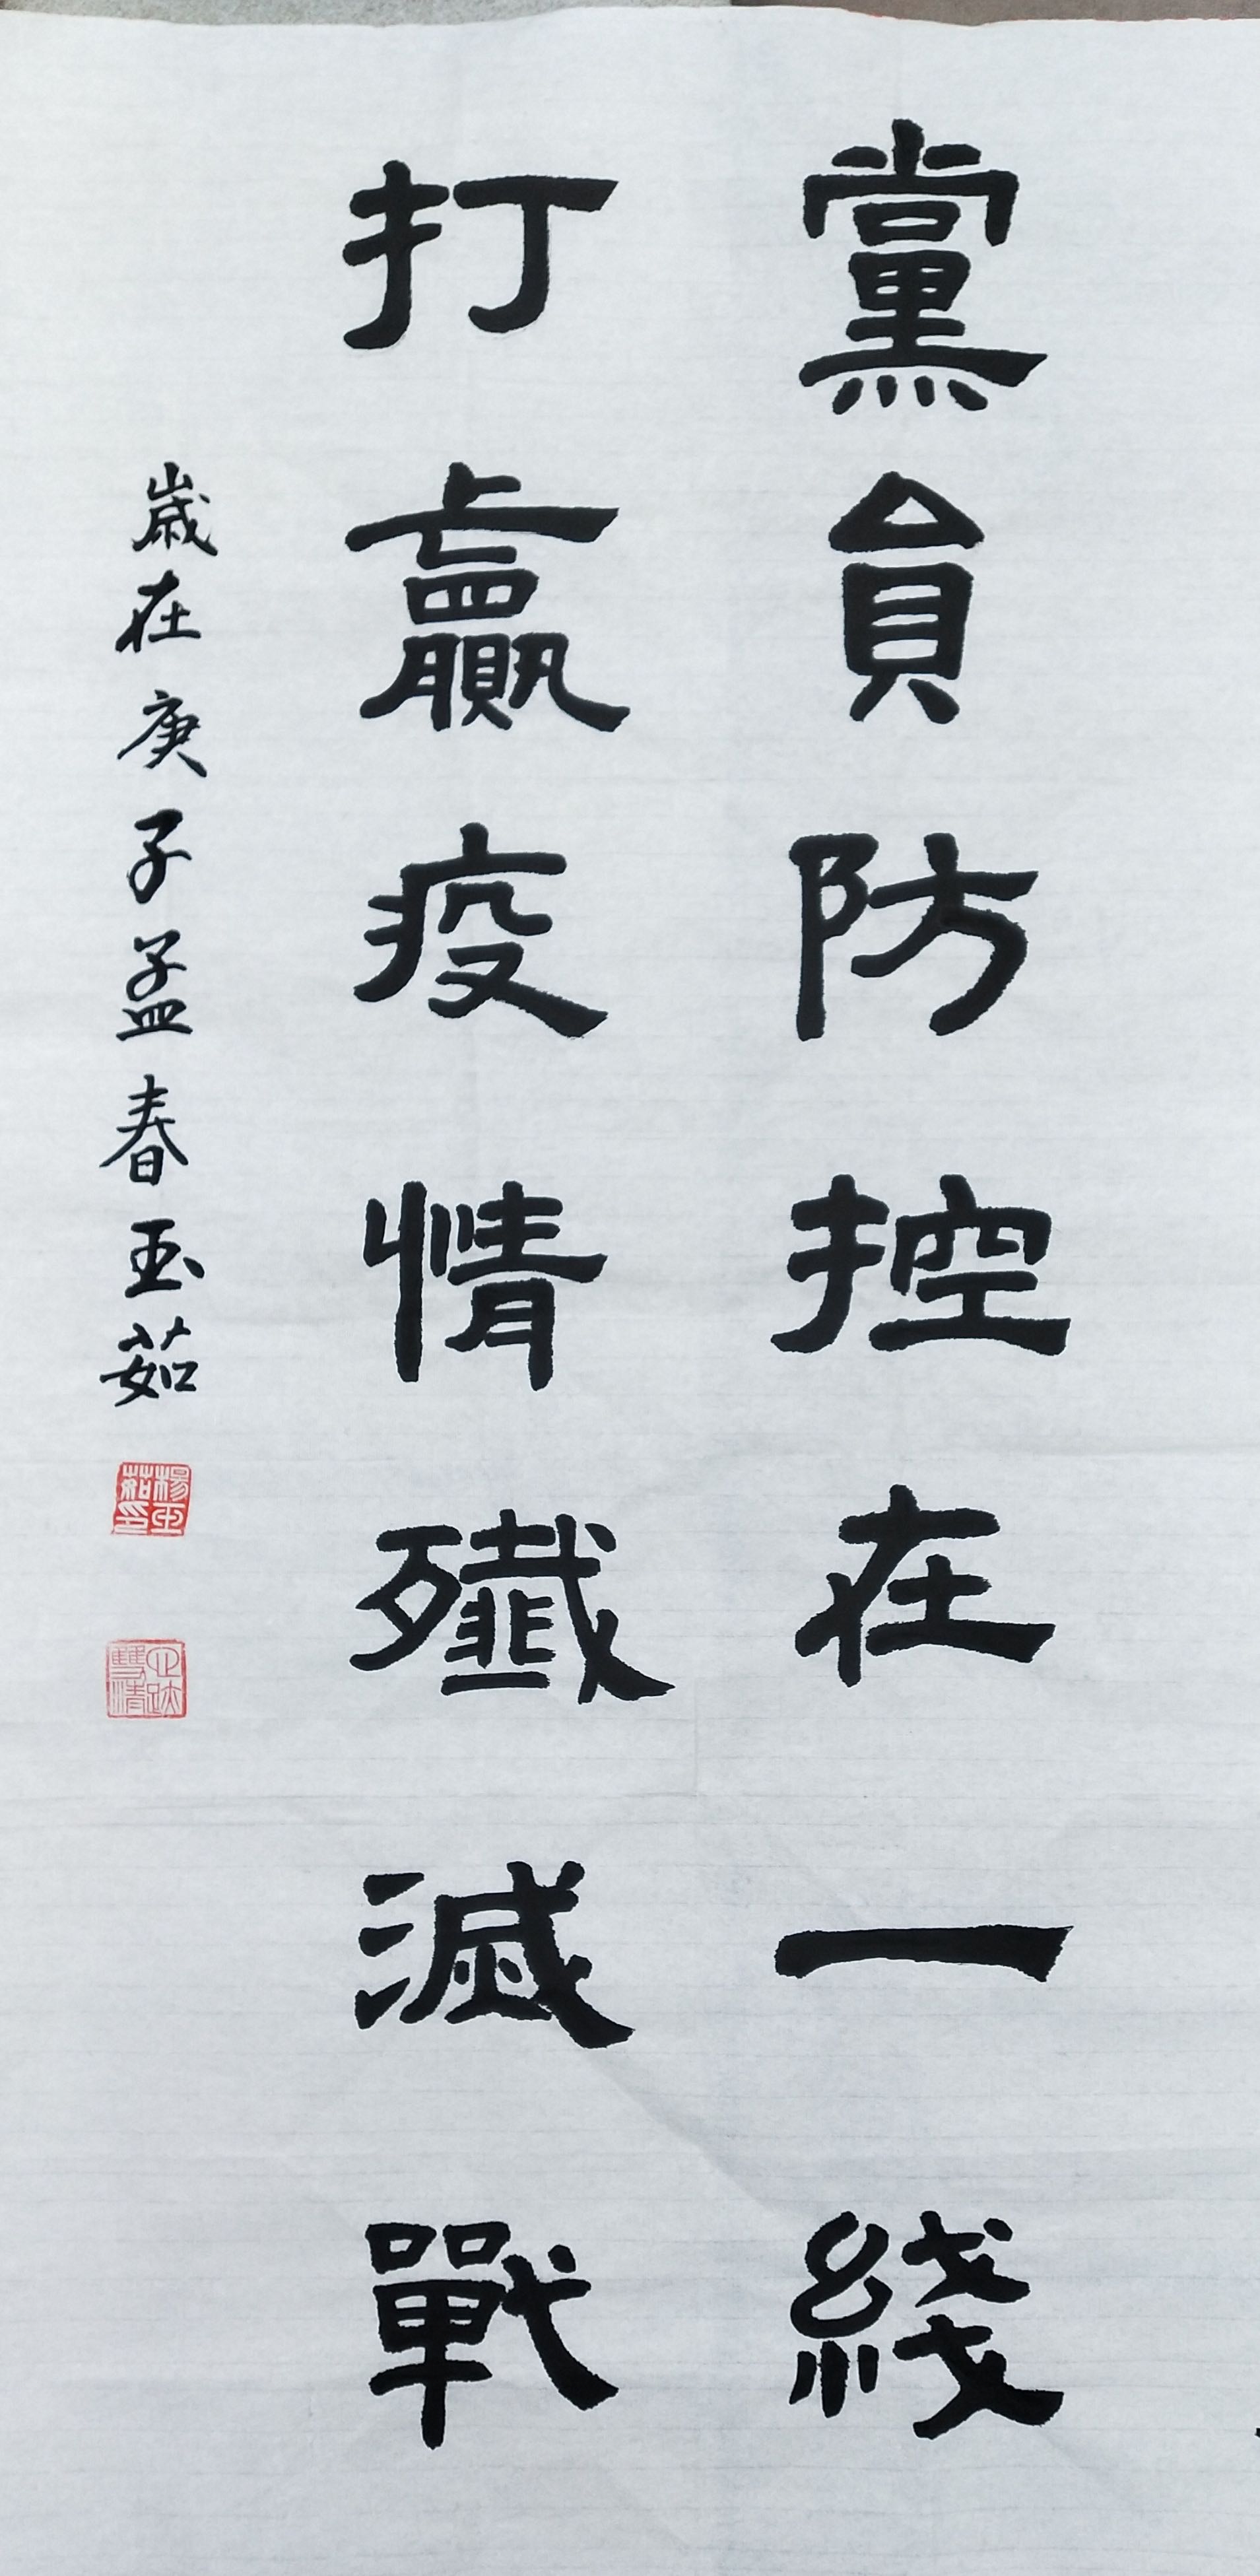 黨員防控在一綫
打贏疫情殲滅戰
歲在庚子孟春玉茹
楊玉茹印